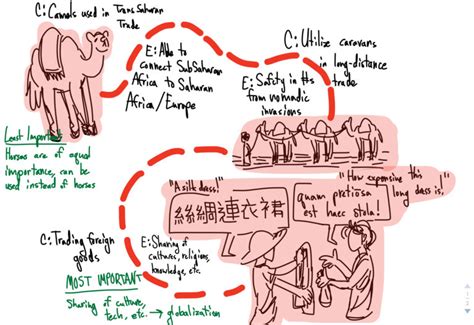 C: Camels used in Trans Saharan
Trade
E: Able to
connect SubSaharan
Africa to Saharan
Africa/Europe
C: Utilize caravans
in long-distance
trade
E: Safety in #s
from nomadic
invasions
Least Important
Horses are of equal
importance, can be
used instead of horses
"A silk dress!"
絲綢連衣裙
"How expensive this
long dress is,"
quam pretiosa
est haec stola!
C: Trading foreign
goods
E: Sharing of
cultures, religions,
knowledge, etc.
MOST IMPORTANT
Sharing of culture,
tech, etc. → globalization